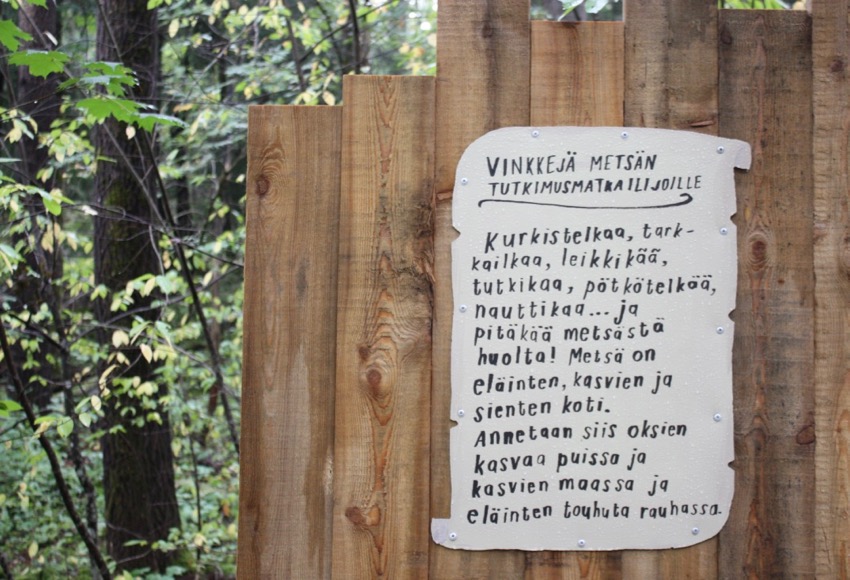 VINKKEJÄ METSÄN
TUTKIMUSMATKAILIJOILLE
Kurkistelkaa, tark-
kailkaa, leikkikää,
tutkikaa, pötkötelkää,
nauttikaa... ja
pitäkää metsästä
huolta! Metsä on
eläinten, kasvien ja
sienten koti.
Annetaan siis oksien
kasvaa puissa ja
kasvien maassa ja
eläinten touhuta rauhassa.